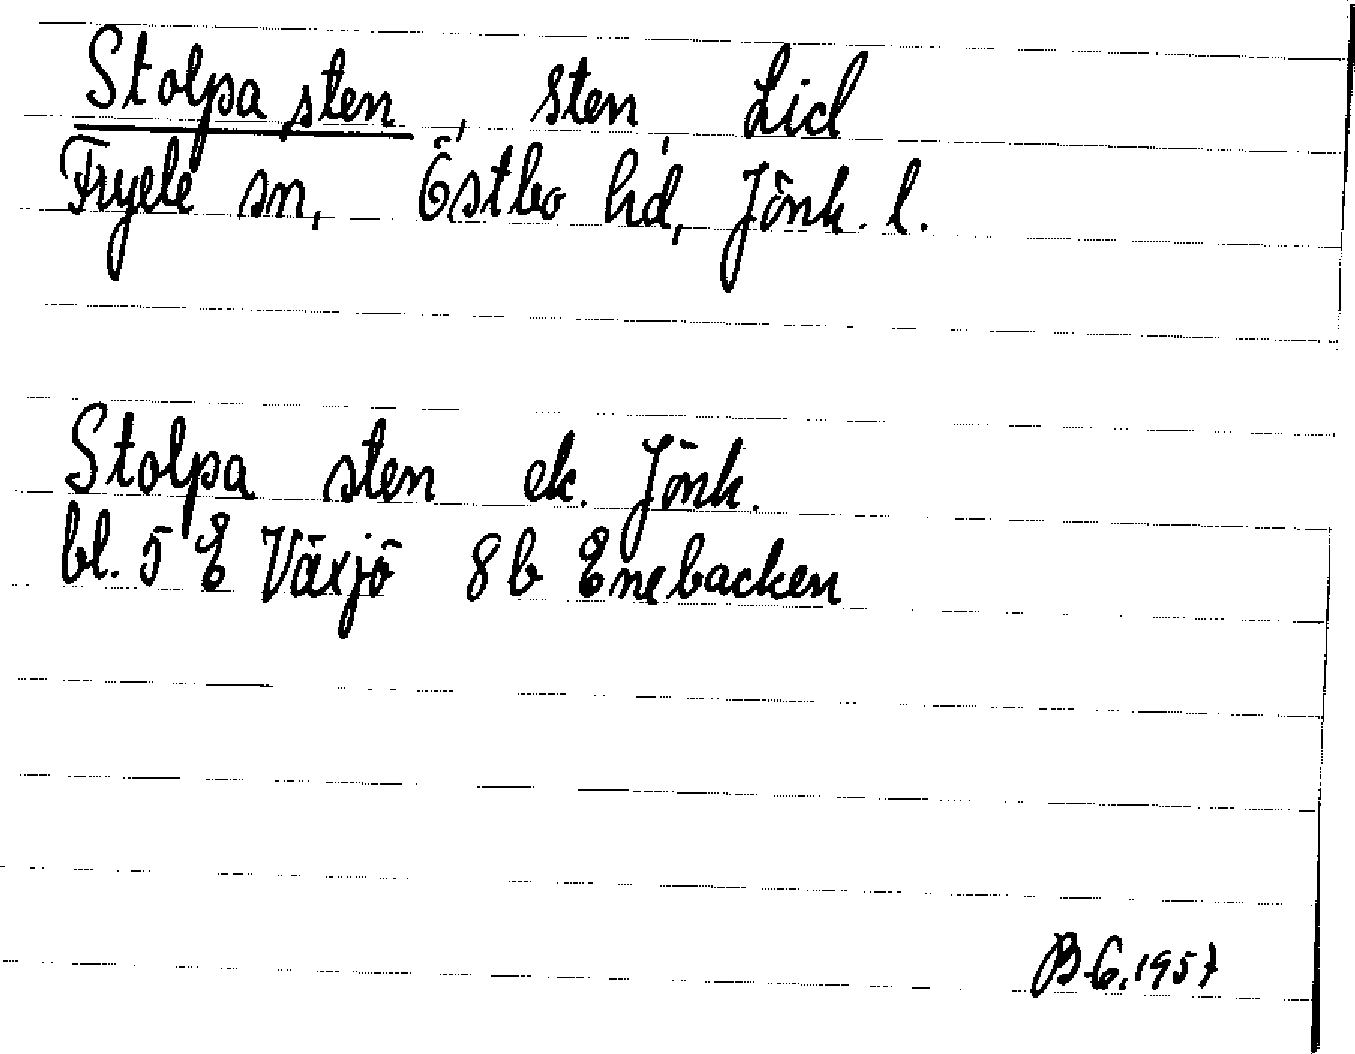 Stolpa sten, sten, Lid
Fryele sn, Östbo hd, Jönk. l.
Stolpa sten ek. Jönk.
bl. 5 E Växjö 8 b Enebacken
B-G, 1957